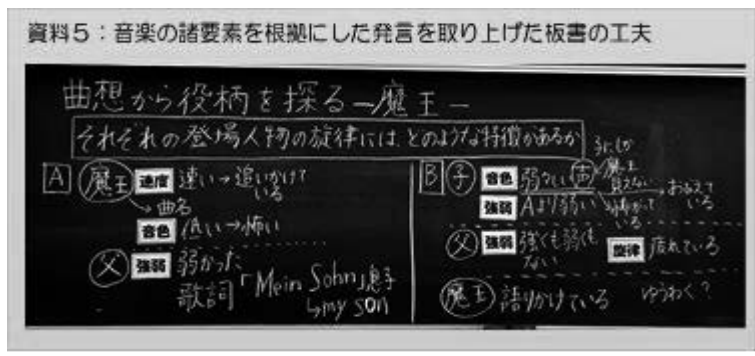 資料5：音楽の諸要素を根拠にした発言を取り上げた板書の工夫
曲想から役柄を探る―魔王―
それぞれの登場人物の旋律には、どのような特徴があるか
A 魔王 速度 速い→追いかけている
→曲名
音色 低い→怖い
父 強弱 弱かった
歌詞「Mein Sohn」息子
↳my son
B 子 音色 弱々しい声
子にしか魔王見えない→おびえている
強弱 Aより弱い→怖がっている
父 強弱 強くも弱くもない 旋律 疲れている
魔王 語りかけている ゆうわく？